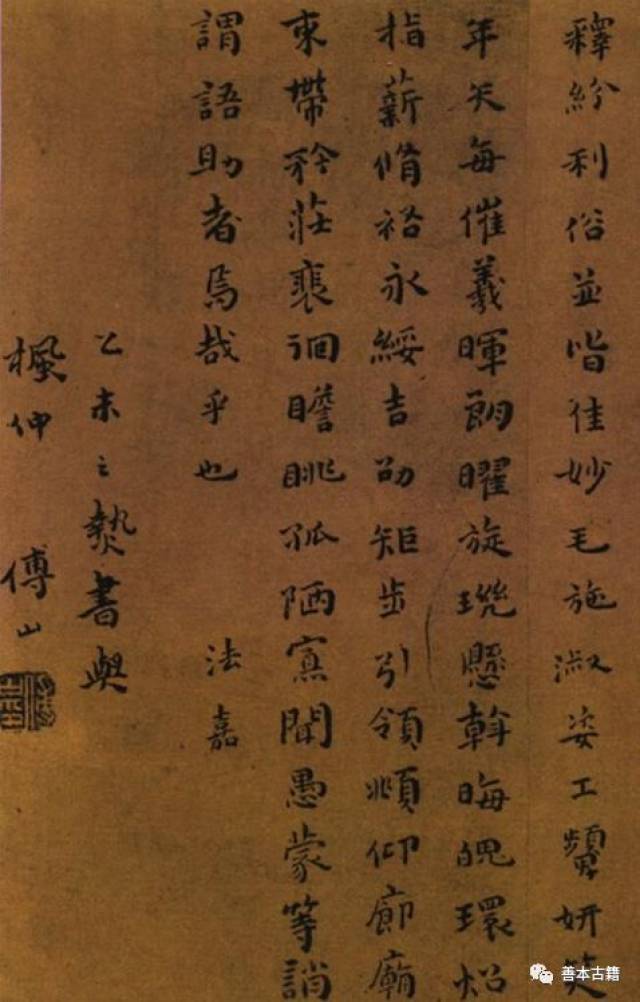 釋紛利俗並皆佳妙毛施淑姿工顰妍笑
年矢每催羲暉朗曜旋璣懸斡晦魄環炤
指薪脩祜永綏吉劭矩步引領頫仰廊廟
束帶矜莊裵徊瞻眺孤陋寡聞愚蒙等誚
謂語助者焉哉乎也 法嘉
乙未之熱書與
楓仲 傅山
善本古籍